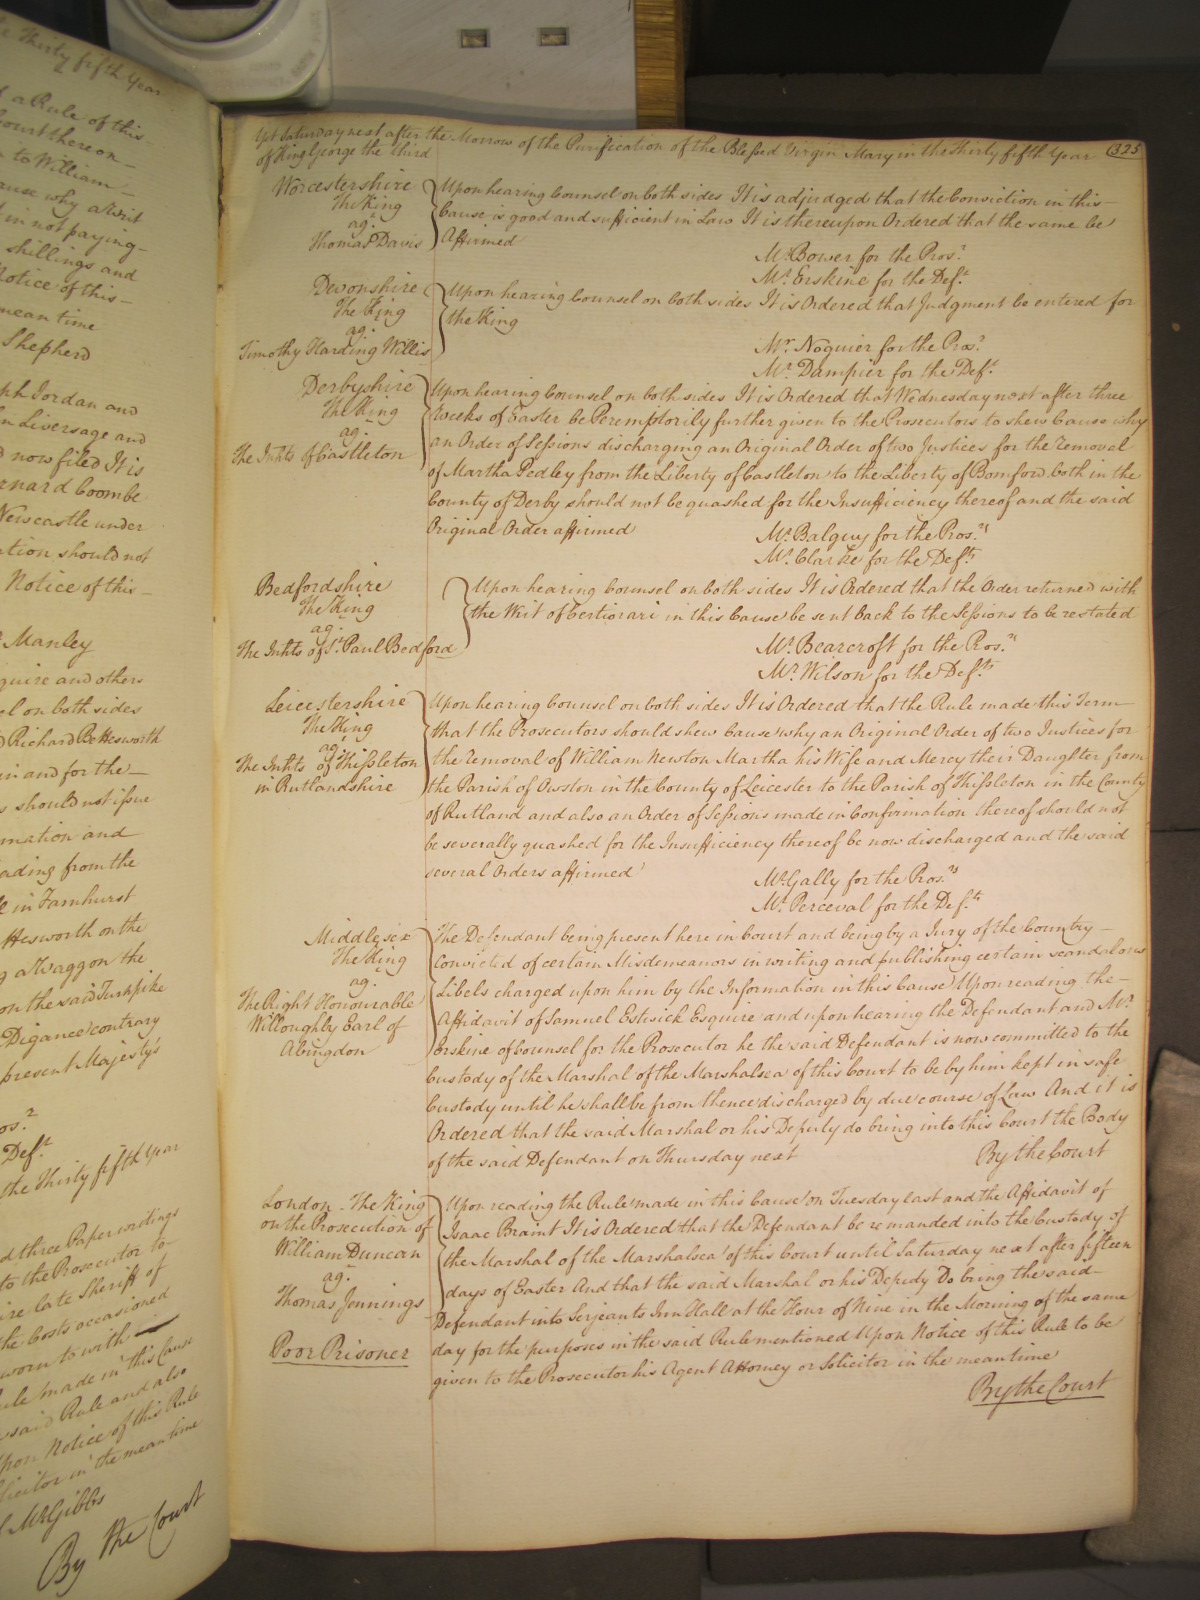 e Thirty fifth Year
a Rule of this
Court thereon
to William
cause why a Writ
in not paying
shillings and
Notice of this
mean time
Shepherd
ph Jordan and
n Liversage and
now filed It is
rnard Coombe
Newcastle under
ation should not
Notice of this
Manley
quire and others
el on both sides
Richard Bettesworth
in and for the
s should not issue
mation and
ading from the
in Farnhurst
ttesworth on the
g a Waggon the
on the said Turnpike
Digance contrary
present Majesty's
Def.t
the Thirty fifth Year
d three Paper writings
to the Prosecutor to
ire late Sheriff of
the Costs occasioned
worn to with
ule made in this Cause
said Rule and also
Upon Notice of this Rule
licitor in the mean time
Mr Gibbs
By the Court
Yet Saturday next after the Morrow of the Purification of the Blessed Virgin Mary in the thirty fifth Year 325
of King George the third
Worcestershire
The King
ag.t
Thomas Davis
Upon hearing Counsel on both sides It is adjudged that the Conviction in this
Cause is good and sufficient in Law It is thereupon Ordered that the same be
Affirmed
Mr. Bower for the Pros.r
Mr. Erskine for the Def.t
Devonshire
The King
ag.t
Timothy Harding Willis
Upon hearing Counsel on both sides It is Ordered that Judgment be entered for
the King
Mr. Noquier for the Pros.r
Mr. Dampier for the Def.t
Derbyshire
The King
ag.t
The Inhts of Castleton
Upon hearing Counsel on both sides It is Ordered that Wednesday next after three
Weeks of Easter be Peremptorily further given to the Prosecutors to shew Cause why
an Order of Sessions discharging an Original Order of two Justices for the Removal
of Martha Pedley from the Liberty of Castleton to the Liberty of Bomford both in the
County of Derby should not be quashed for the Insufficiency thereof and the said
Original Order affirmed
Mr. Balguy for the Pros.rs
Mr. Clarke for the Def.ts
Bedfordshire
The King
ag.t
The Inhts of St. Paul Bedford
Upon hearing Counsel on both sides It is Ordered that the Order returned with
the Writ of Certiorari in this Cause be sent back to the Sessions to be restated
Mr. Bearcroft for the Pros.rs
Mr. Wilson for the Def.ts
Leicestershire
The King
ag.t
The Inhts of Thissleton
in Rutlandshire
Upon hearing Counsel on both sides It is Ordered that the Rule made this Term
that the Prosecutors should shew Cause why an Original Order of two Justices for
the Removal of William Newton Martha his Wife and Mercy their Daughter from
the Parish of Owston in the County of Leicester to the Parish of Thissleton in the County
of Rutland and also an Order of Sessions made in Confirmation thereof should not
be severally quashed for the Insufficiency thereof be now discharged and the said
several Orders affirmed
Mr. Gally for the Pros.rs
Mr. Perceval for the Def.ts
Middlesex
The King
ag.t
The Right Honourable
Willoughby Earl of
Abingdon
The Defendant being present here in Court and being by a Jury of the Country
convicted of certain Misdemeanors in writing and publishing certain scandalous
Libels charged upon him by the Information in this Cause Upon reading the
Affidavit of Samuel Estisick Esquire and upon hearing the Defendant and Mr.
Erskine of Counsel for the Prosecutor he the said Defendant is now committed to the
Custody of the Marshal of the Marshalsea of this Court to be by him kept in safe
Custody until he shall be from thence discharged by due course of Law And it is
Ordered that the said Marshal or his Deputy do bring into this Court the Body
of the said Defendant on Thursday next
By the Court
London - The King
on the Prosecution of
William Duncan
ag.t
Thomas Jennings
Poor Prisoner
Upon reading the Rule made in this Cause on Tuesday last and the Affidavit of
Isaac Braint It is Ordered that the Defendant be remanded into the Custody of
the Marshal of the Marshalsea of this Court until Saturday next after fifteen
days of Easter And that the said Marshal or his Deputy Do bring the said
Defendant into Serjeants Inn Hall at the Hour of Nine in the Morning of the same
day for the purposes in the said Rule mentioned Upon Notice of this Rule to be
given to the Prosecutor his Agent Attorney or Solicitor in the mean time
By the Court